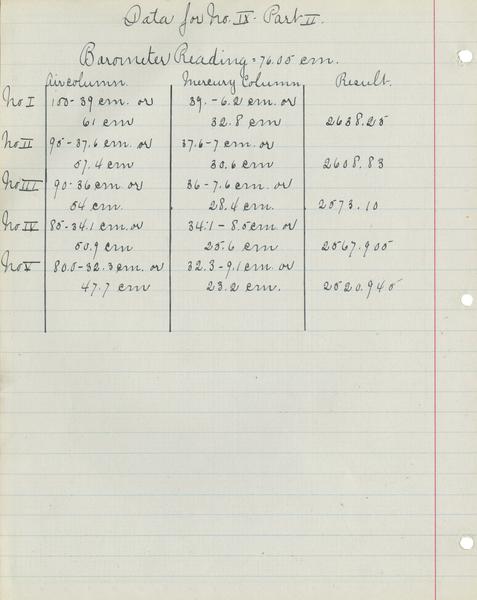 Data for No. IX. Part II.
Barometer Reading = 76.05 cm.
Air column. Mercury Column Result.
No. I 100-39 cm. or 39.-6.2 cm. or
61 cm 32.8 cm. 2638.25
No II 95-37.6 cm. or 37.6-7 cm. or
57.4 cm 30.6 cm. 2608.83
No III 90-36 cm. or 36-7.6 cm. or
54 cm. 28.4 cm. 2573.10
No IV 85-34.1 cm. or 34.1-8.5 cm. or
50.9 cm 25.6 cm 2567.905
No V 80.0-32.3 cm. or 32.3-9.1 cm. or
47.7 cm 23.2 cm. 2520.945